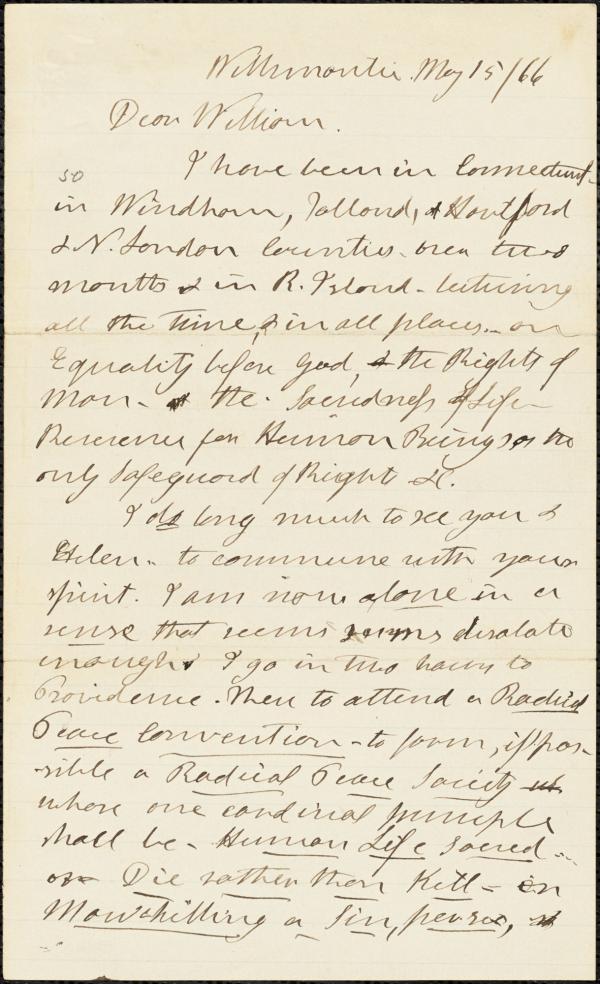 Willimantic. May 15/66
Dear William.
I have been in Connecticut -
50
in Windham, Tolland, & Hartford
& N. London Counties - over two
months & in R. Island - lecturing
all the time, & in all places - on
Equality before God, & the Rights of
Man - the Sacredness of Life -
Reverence for Human Beings as the
only safeguard of Right &c.
I do long much to see you &
Helen - to commune with your
spirit. I am now alone in a
sense that seems desolate
enough. I go in two hours to
Providence. Then to attend a Radical
Peace Convention - to form, if pos-
-sible a Radical Peace Society
whose one cardinal principle
shall be - Human Life sacred -
or Die rather than Kill - or
Man-killing a Sin, per se,